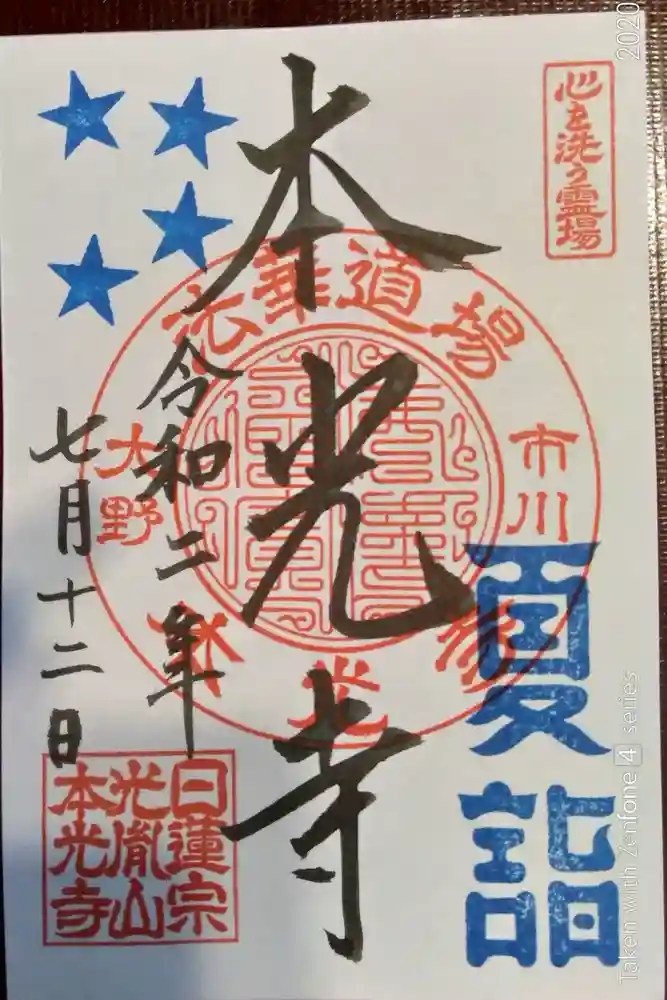 心を洗う霊場
夏詣
本光寺
法華道場
市川
大野
本光寺
令和二年
七月十二日
日蓮宗
光胤山
本光寺
Taken with Zenfone 4 series
2020